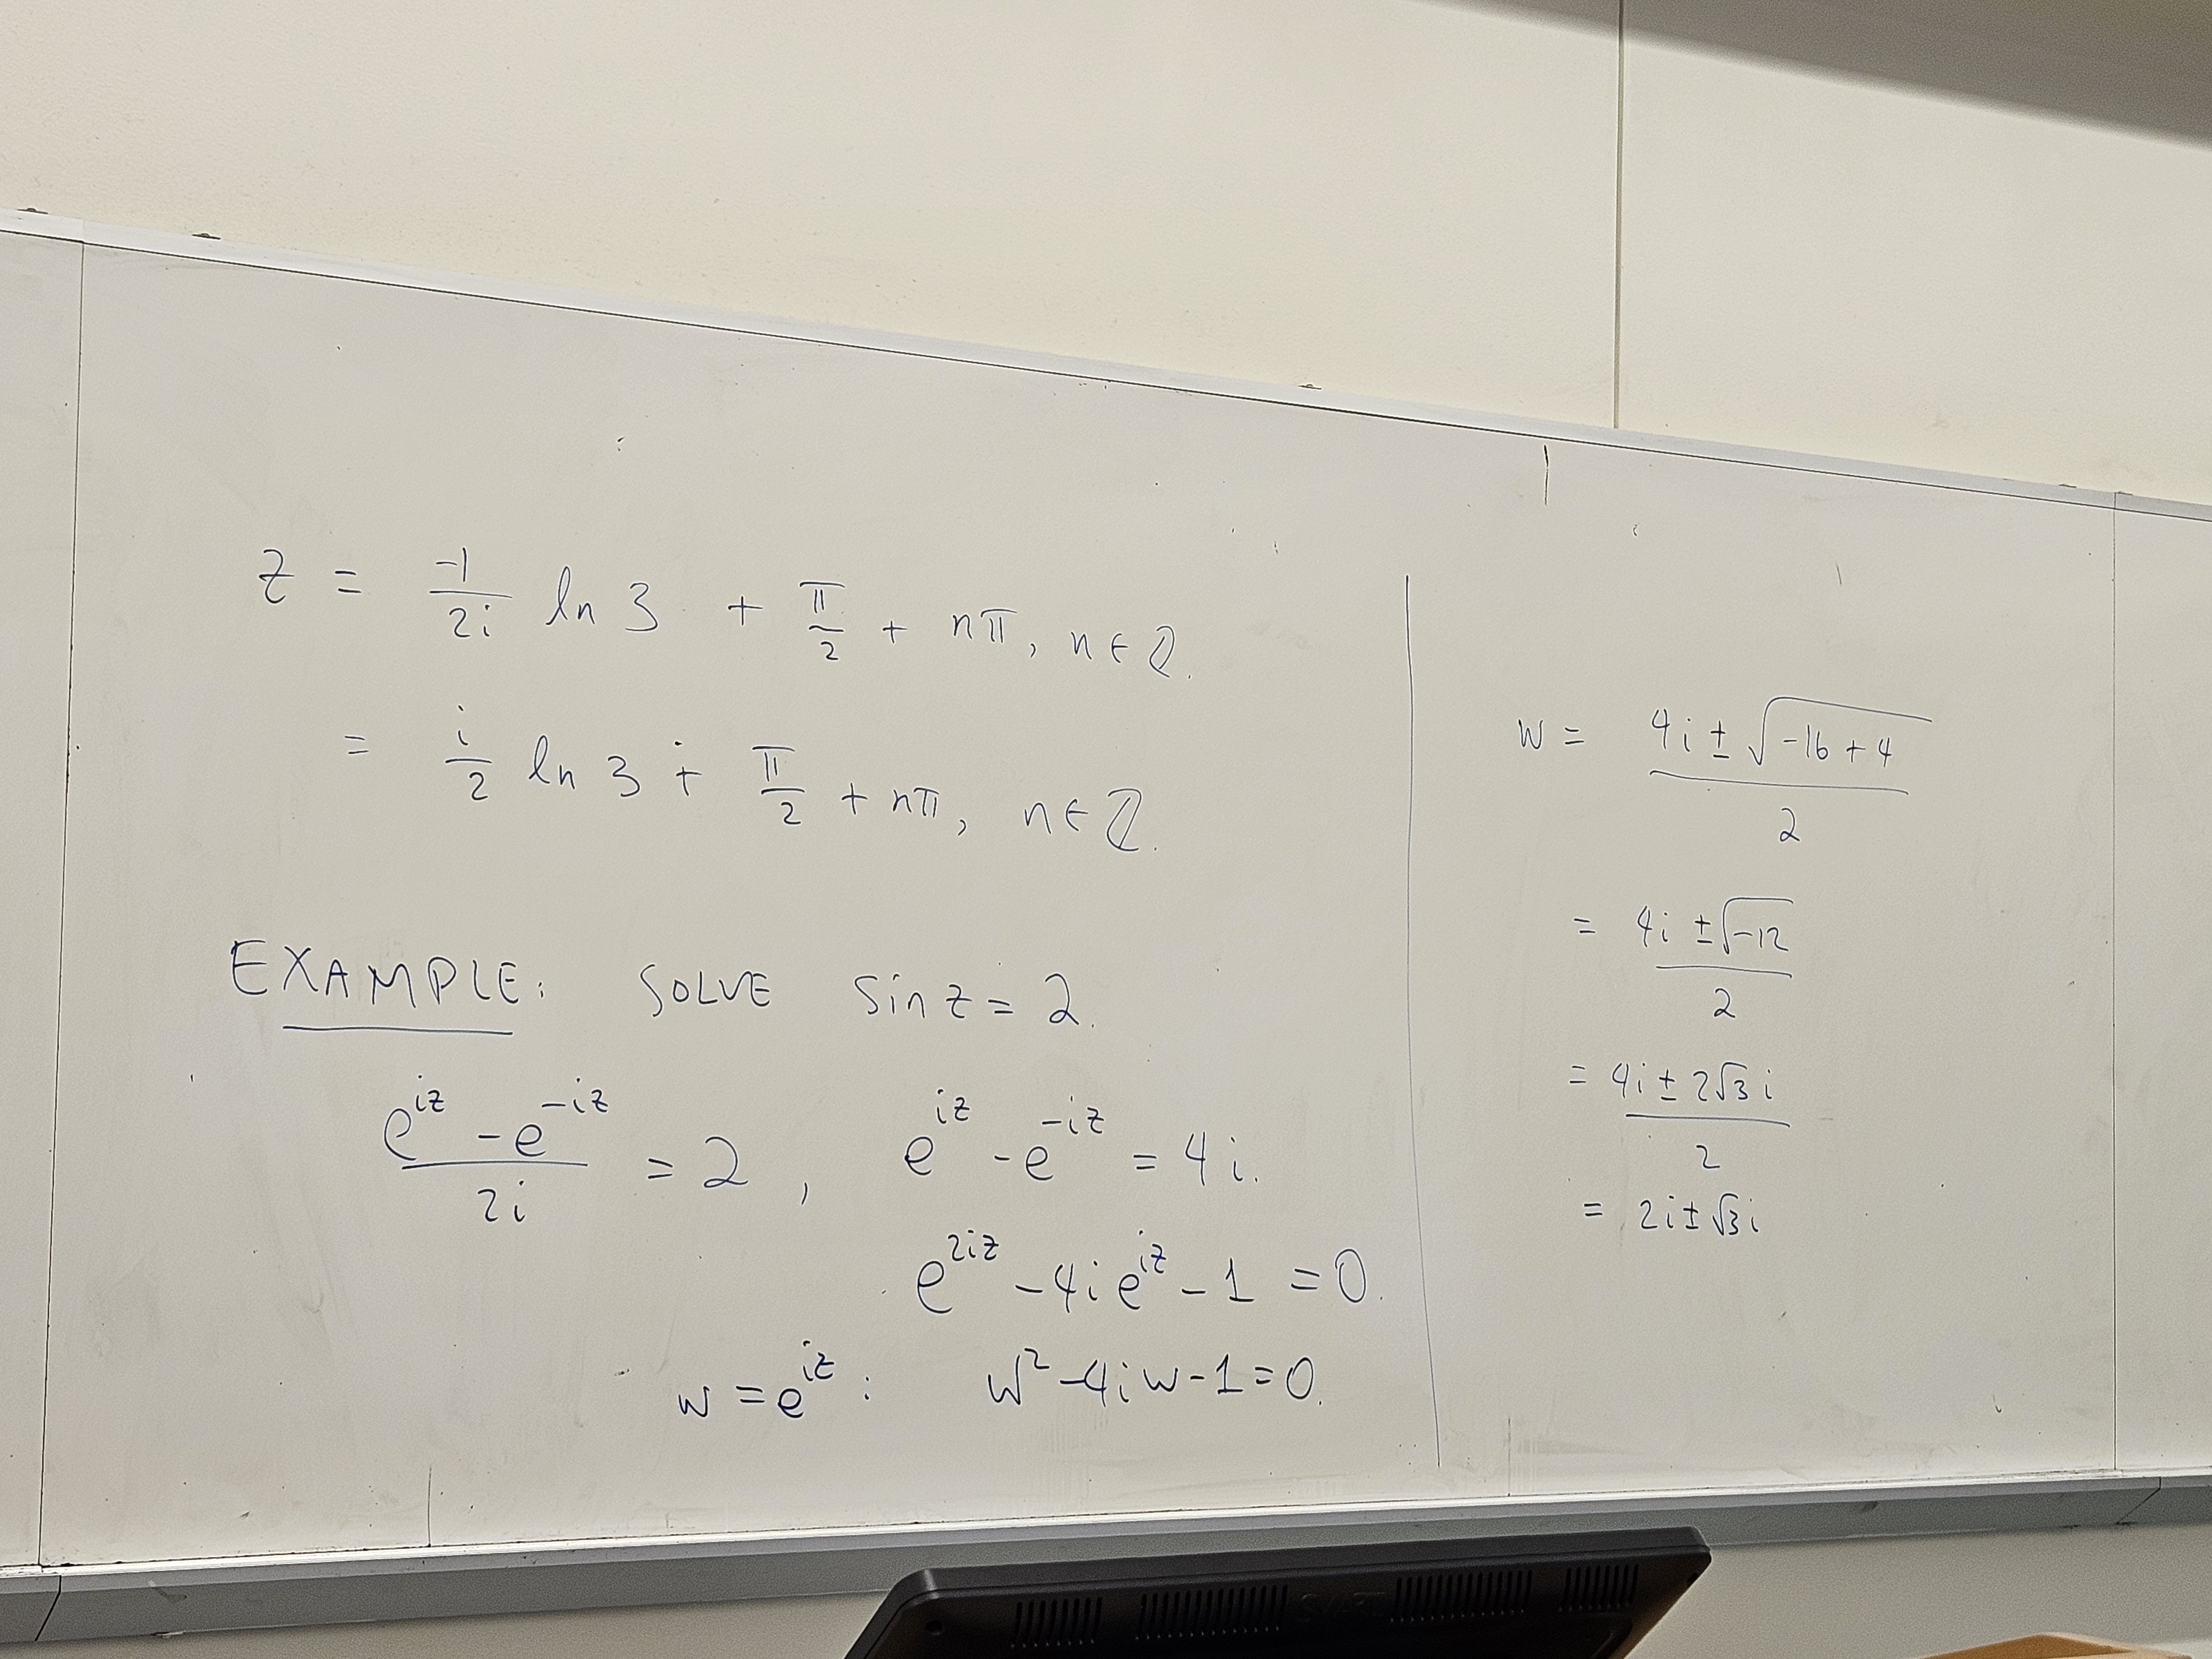 z = -1/2i ln 3 + π/2 + nπ, n ∈ ℤ.
= i/2 ln 3 + π/2 + nπ, n ∈ ℤ.
EXAMPLE: SOLVE sin z = 2.
(e^{iz} - e^{-iz})/2i = 2, e^{iz} - e^{-iz} = 4i.
e^{2iz} - 4i e^{iz} - 1 = 0.
w = e^{iz} : w² - 4iw - 1 = 0.
w = (4i ± √(-16 + 4))/2
= (4i ± √(-12))/2
= (4i ± 2√3 i)/2
= 2i ± √3 i